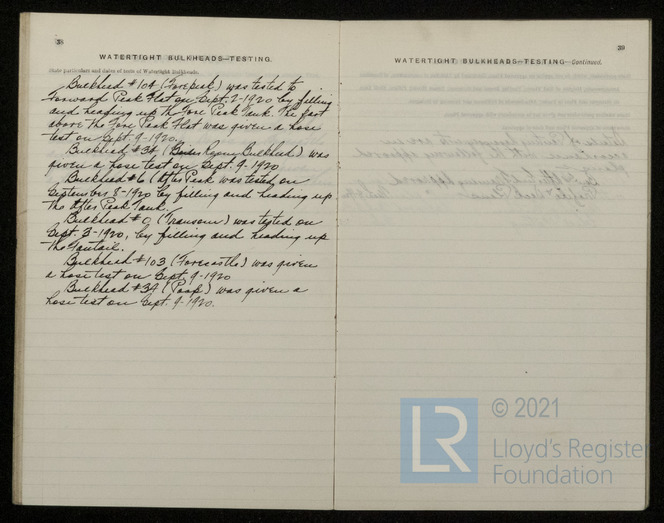 38
WATERTIGHT BULKHEADS—TESTING.
State particulars and dates of tests of Watertight Bulkheads.
Bulkhead #104 (Forepeak) was tested to
Forward Peak Flat on Sept. 2-1920 by filling
and heading up the Fore Peak Tank. The part
above the Fore Peak Flat was given a hose
test on Sept. 9-1920.
Bulkhead #34 (Boiler Room Bulkhead) was
given a hose test on Sept. 9-1920
Bulkhead #6 (After Peak) was tested on
September 3-1920 by filling and heading up
the After Peak Tank.
Bulkhead #0 (Transom) was tested on
Sept. 3-1920, by filling and heading up
the Fantail.
Bulkhead #103 (Forecastle) was given
a hose test on Sept. 9-1920
Bulkhead #34 (Poop) was given a
hose test on Sept. 9-1920.
39
WATERTIGHT BULKHEADS—TESTING—Continued.
© 2021
LR
Lloyd's Register
Foundation